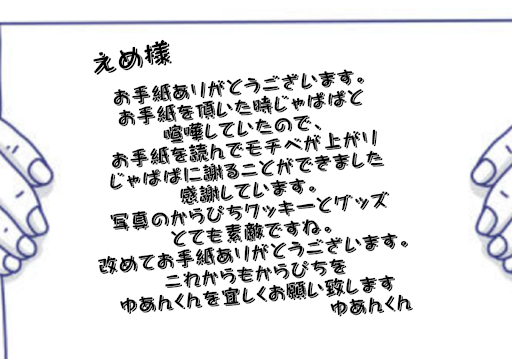 えめ様
お手紙ありがとうございます。
お手紙を頂いた時じゃぱぱと
喧嘩していたので、
お手紙を読んでモチベが上がり
じゃぱぱに謝ることができました
感謝しています。
写真のからぴちクッキーとグッズ
とても素敵ですね。
改めてお手紙ありがとうございます。
これからもからぴちを
ゆあんくんを宜しくお願い致します
ゆあんくん